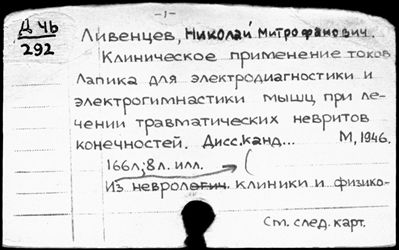 -1-
Д 4б
292
Ливенцев, Николай Митрофанович.
Клиническое применение токов
Лапика для электродиагностики и
электрогимнастики мышц при ле-
чении травматических невритов
конечностей. Дисс.канд... М, 1946.
166л; 8л. илл. (
Из неврологич. клиники и физико-
См. след. карт.